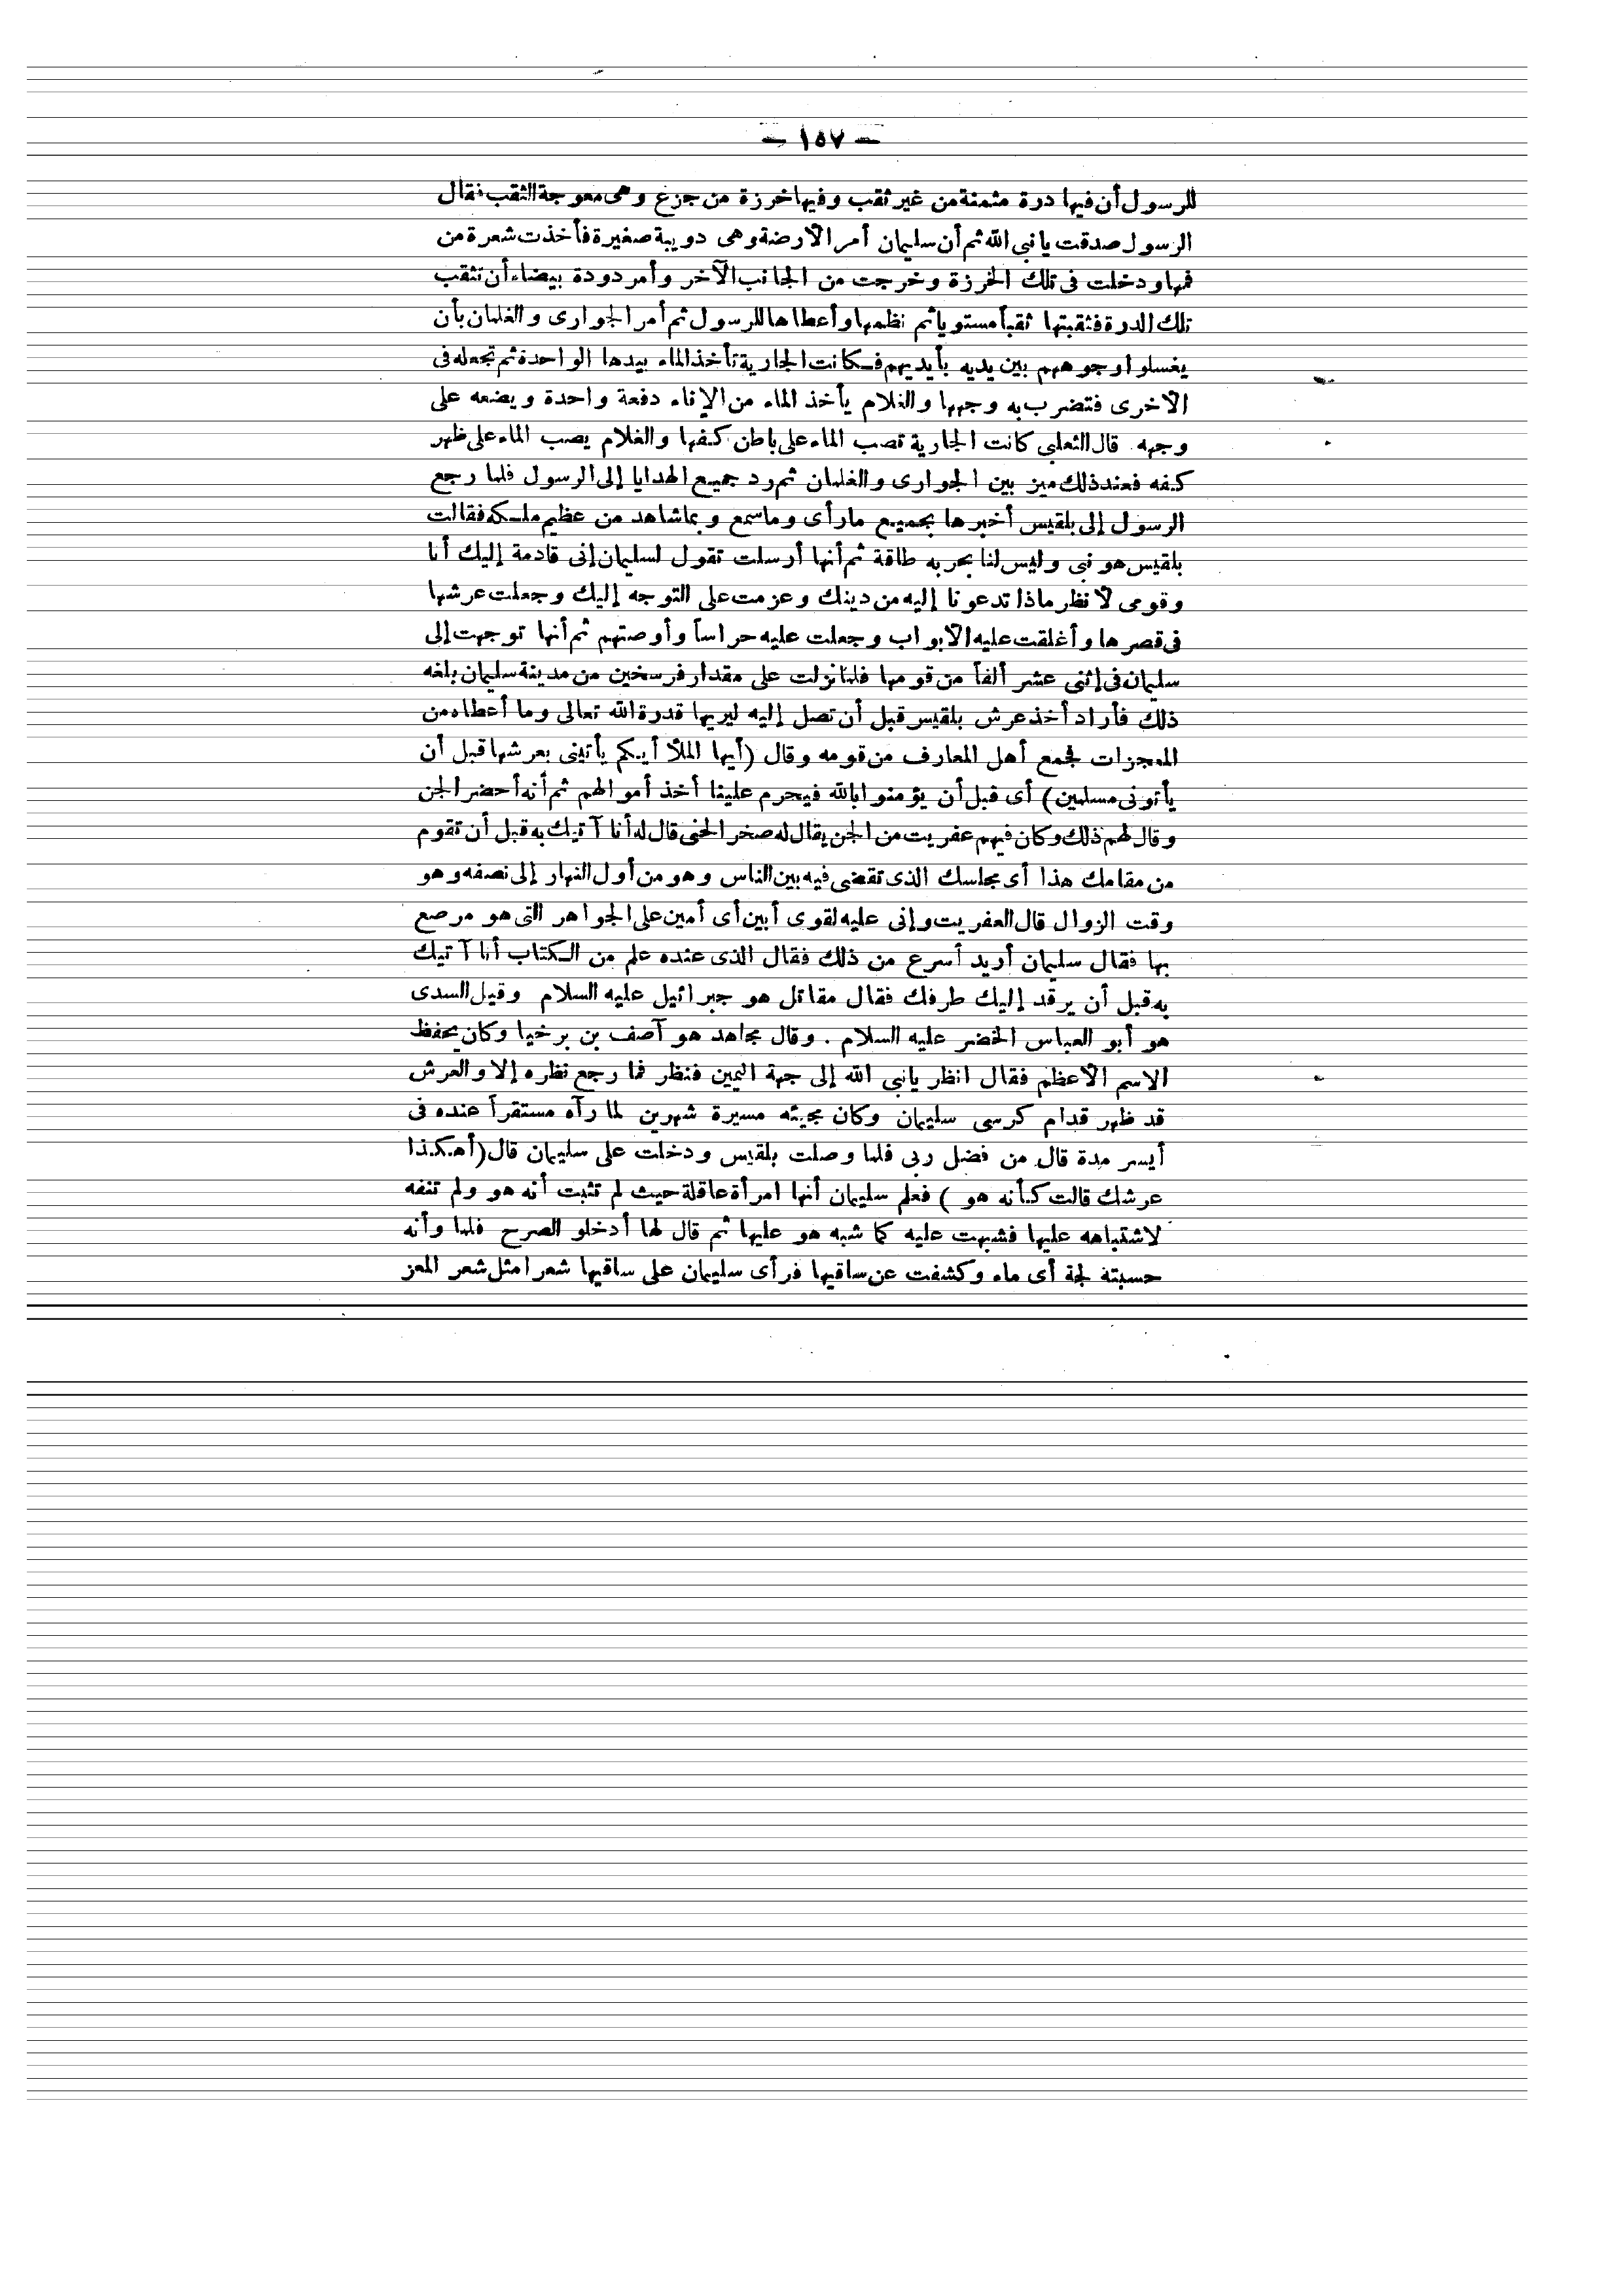 — ١٥٧ —
للرسول أن فيها درة مثمنة من غير ثقب وفيها خرزة من جزع وهى معوجة الثقب فقال
الرسول صدقت يا نبى الله ثم أن سليمان أمر الأرضة وهى دويبة صغيرة فأخذت شعرة من
فمها ودخلت فى تلك الخرزة وخرجت من الجانب الآخر وأمر دودة بيضاء أن تثقب
تلك الدرة فثقبتها ثقباً مستويا ثم نظمها وأعطاها للرسول ثم أمر الجوارى والغلمان بأن
يغسلوا وجوههم بين يديه بأيديهم فكانت الجارية تأخذ الماء بيدها الواحدة ثم تجعله فى
الاخرى فتضرب به وجهها والغلام يأخذ الماء من الإناء دفعة واحدة ويضعه على
وجهه قال الثعلبى كانت الجارية تصب الماء على باطن كفها والغلام يصب الماء على ظهر
كفه فعند ذلك ميز بين الجوارى والغلمان ثم رد جميع الهدايا إلى الرسول فلما رجع
الرسول إلى بلقيس أخبرها بجميع مارأى وماسمع وبماشاهد من عظيم ملكه فقالت
بلقيس هو نبى وليس لنا بحربه طاقة ثم أنها أرسلت تقول لسليمان إنى قادمة إليك أنا
وقومى لانظر ماذا تدعونا إليه من دينك وعزمت على التوجه إليك وجعلت عرشها
فى قصرها وأغلقت عليه الأبواب وجعلت عليه حراساً وأوصتهم ثم أنها توجهت إلى
سليمان فى إثنى عشر ألفاً من قومها فلما نزلت على مقدار فرسخين من مدينة سليمان بلغه
ذلك فأراد أخذ عرش بلقيس قبل أن تصل إليه ليريها قدرة الله تعالى وما أعطاه من
المعجزات فجمع أهل المعارف من قومه وقال (أيها الملأ أيكم يأتينى بعرشها قبل أن
يأتونى مسلمين) أى قبل أن يؤمنوا بالله فيحرم علينا أخذ أموالهم ثم أنه أحضر الجن
وقال لهم ذلك وكان فيهم عفريت من الجن يقال له صخر الجنى قال له أنا آتيك به قبل أن تقوم
من مقامك هذا أى مجلسك الذى تقضى فيه بين الناس وهو من أول النهار إلى نصفه وهو
وقت الزوال قال العفريت وإنى عليه لقوى أبين أى أمين على الجواهر التى هو مرصع
بها فقال سليمان أريد أسرع من ذلك فقال الذى عنده علم من الكتاب أنا آتيك
به قبل أن يرقد إليك طرفك فقال مقاتل هو جبرائيل عليه السلام وقيل السدى
هو أبو العباس الخضر عليه السلام . وقال مجاهد هو آصف بن برخيا وكان يحفظ
الاسم الأعظم فقال انظر يانبى الله إلى جهة اليمين فنظر فما رجع نظره إلا والعرش
قد ظهر قدام كرسى سليمان وكان مجيئه مسيرة شهرين لما رآه مستقرأ عنده فى
أيسر مدة قال من فضل ربى فلما وصلت بلقيس ودخلت على سليمان قال (أهكذا
عرشك قالت كأنه هو ) فعلم سليمان أنها امرأة عاقلة حيث لم تثبت أنه هو ولم تنفه
لاشتباهه عليها فشبهت عليه كما شبه هو عليها ثم قال لها أدخلو الصرح فلما وأنه
حسبتة لجة أى ماء وكشفت عن ساقيها فرأى سليمان على ساقيها شعرا مثل شعر المعز